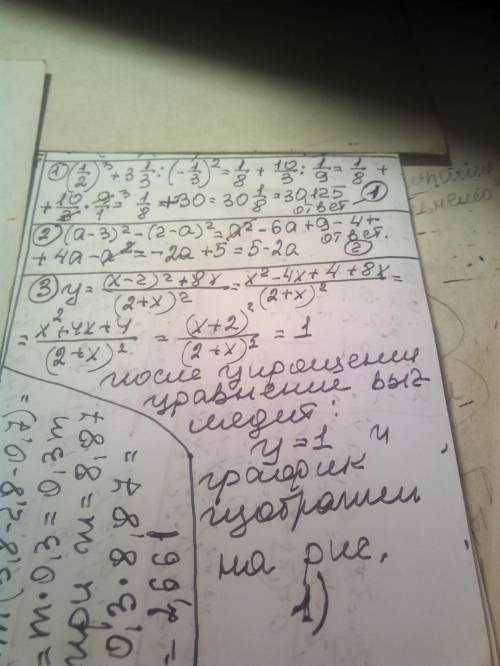 ① (1/2)³ + 3 1/3 : (-1/3)² = 1/8 + 10/3 : 1/9 = 1/8 +
+ 10/3 · 9/1 = 1/8 + 30 = 30 1/8 = 30,125
ответ 1
② (a-3)² - (2-a)² = a² - 6a + 9 - 4 +
+ 4a - a² = -2a + 5 = 5 - 2a ответ. ②
③ y = (x-2)² + 8x / (2+x)² = x² - 4x + 4 + 8x / (2+x)² =
= x² + 4x + 4 / (2+x)² = (x+2)² / (2+x)² = 1
после упрощения
уравнение выг
лядит:
y = 1 и
график
изображен
на рис.
1)
m(3,8-2,8-0,7) =
= m · 0,3 = 0,3m
при m = 8,87
0,3 · 8,87 =
= 2,661